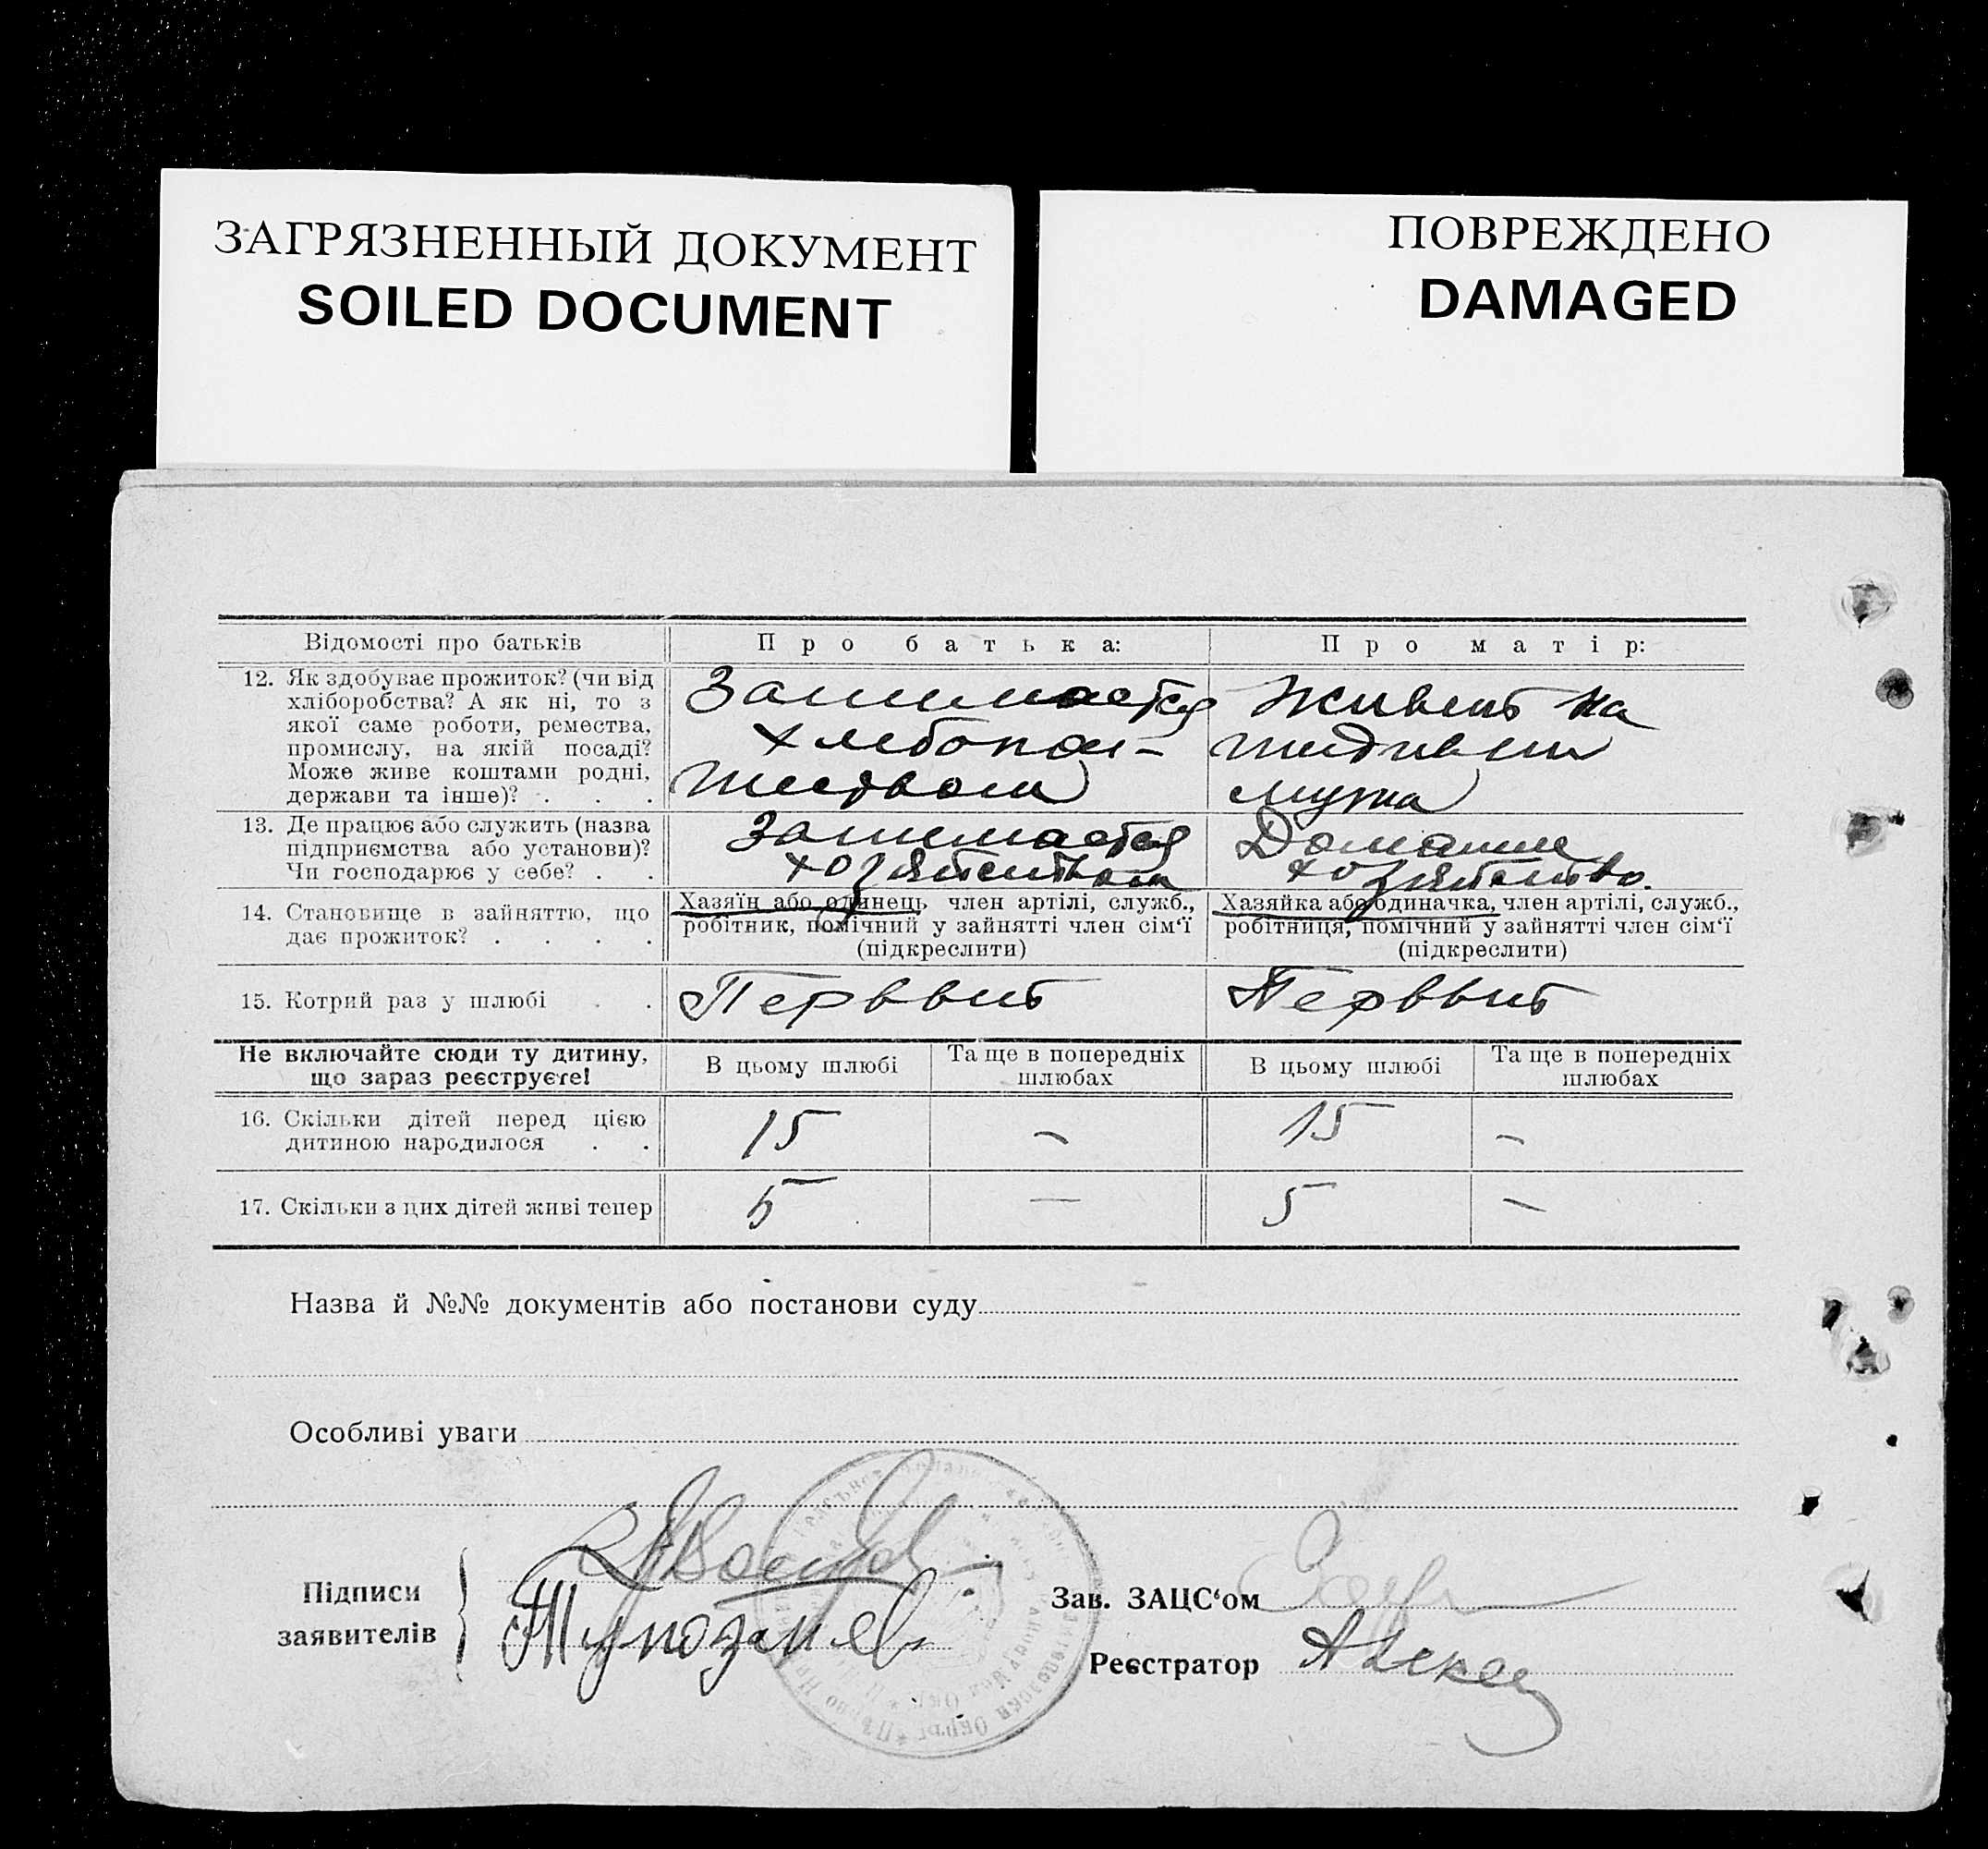 ЗАГРЯЗНЕННЫЙ ДОКУМЕНТ
SOILED DOCUMENT
ПОВРЕЖДЕНО
DAMAGED
Відомості про батьків
Про батька:
Про матір:
12. Як здобуває прожиток? (чи від
хліборобства? А як ні, то з
якої саме роботи, ремества,
промислу, на якій посаді?
Може живе коштами родні,
держави та інше)? . . .
Занимается
хлебопа-
шеством
Живет на
мужа
13. Де працює або служить (назва
підприємства або установи)?
Чи господарює у себе? . .
Занимается
хозяйством
Домашнее
хозяйство.
14. Становище в зайняттю, що
дає прожиток? . . . .
Хазяїн або одинець член артілі, служб.,
робітник, помічний у зайнятті член сім‘ї
(підкреслити)
Хазяйка або одиначка, член артілі, служб.,
робітниця, помічний у зайнятті член сім‘ї
(підкреслити)
15. Котрий раз у шлюбі . .
Перввит
Перввит
Не включайте сюди ту дитину,
що зараз реєструєте!
В цьому шлюбі
Та ще в попередніх
шлюбах
В цьому шлюбі
Та ще в попередніх
шлюбах
16. Скільки дітей перед цією
дитиною народилося . .
15
–
15
–
17. Скільки з цих дітей живі тепер
5
–
5
–
Назва й №№ документів або постанови суду
Особливі уваги
Підписи
заявителів
Зав. ЗАЦС‘ом
Реєстратор